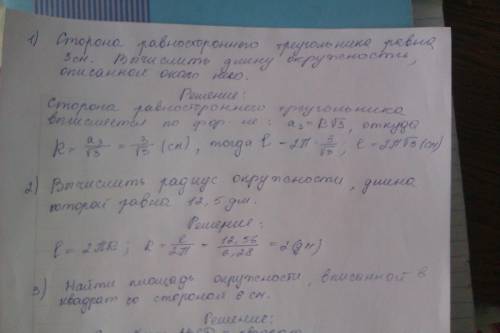 1) Сторона равностороннего треугольника равна
3см. Вычислить длину окружности,
описанной около него.
Решение:
Сторона равностороннего треугольника
вычисляется по фор-ле: a₃ = R√3, откуда
R = a₃/√3 = 3/√3 (см), тогда l = 2π · 3/√3; l = 2π√3 (см)
2) Вычислить радиус окружности, длина
которой равна 12,5 дм.
Решение:
l = 2πR; R = l/2π = 12,56/6,28 = 2 (дм)
3) Найти площадь окружности, вписанной в
квадрат со стороной 6 см.
Решение: